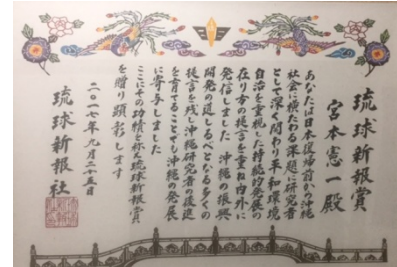 琉球新報賞
宮本憲一殿
あなたは日本復帰前から沖縄
社会に横たわる課題に研究者
として深く関わり平和環境
自治を重視した持続的発展の
在り方の提言を重ね内外に
発信しました 沖縄の振興
開発の道しるべとなる多くの
提言を残し沖縄研究者の後進
を育てることでも沖縄の発展
に寄与しました
ここにその功績を称え琉球新報賞
を贈り顕彰します
二〇一七年九月二十五日
琉球新報社